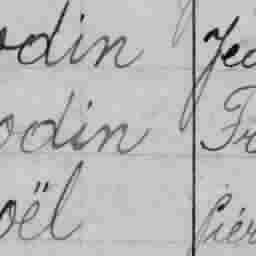 odin Jea
odin Fra
oël Pier